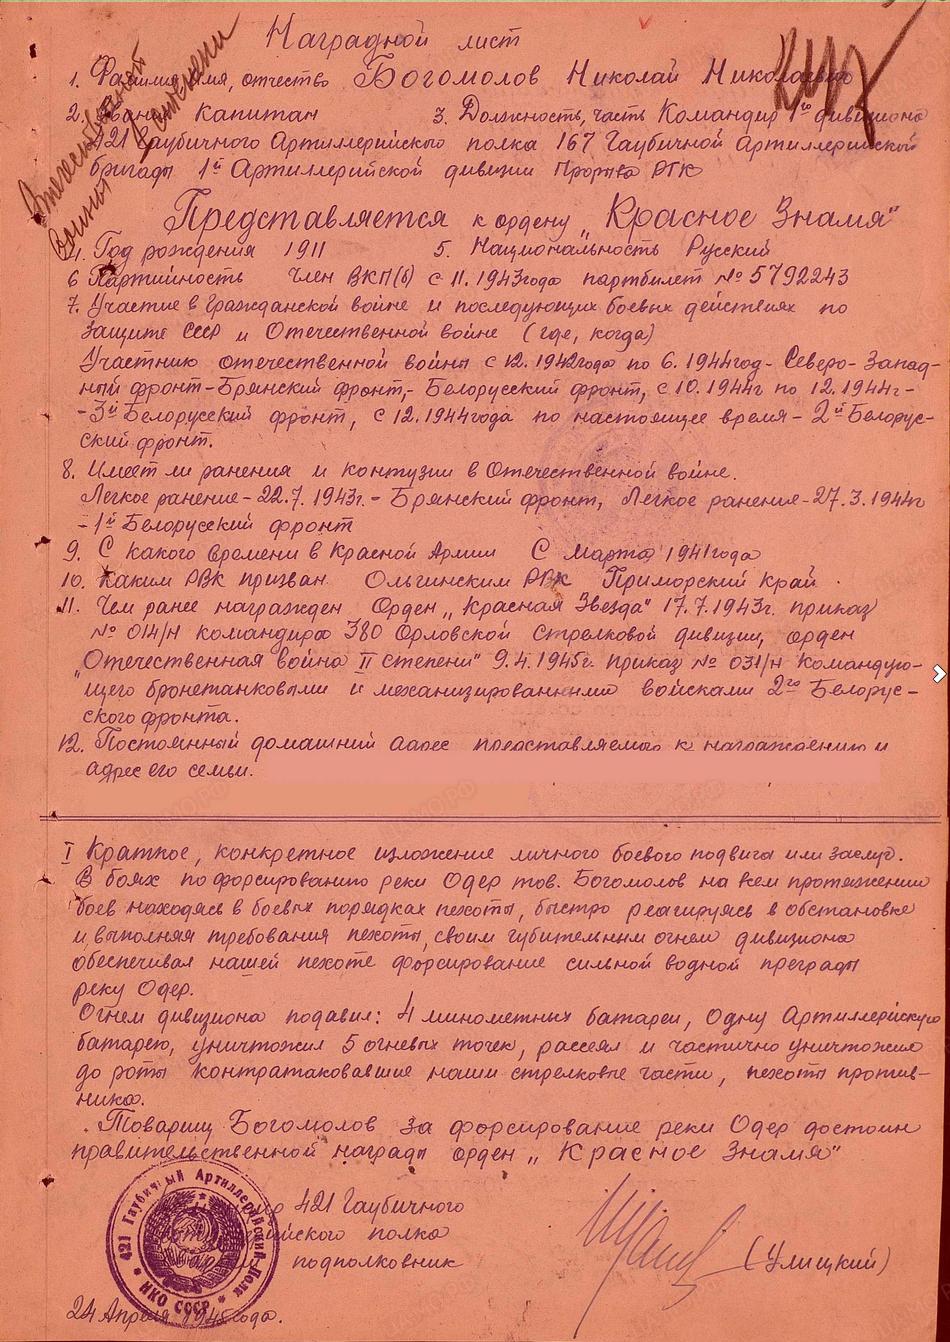 Наградной лист
Отечественной
войны
I степени
1. Фамилия, имя, отчество Богомолов Николай Николаевич
2. Звание Капитан 3. Должность, часть Командир 1го дивизиона
421 Гаубичного Артиллерийского полка 167 Гаубичной Артиллерийской
бригады 1й Артиллерийской дивизии Прорыва РГК
Представляется к ордену „Красное Знамя"
4. Год рождения 1911 5. Национальность Русский
6 Партийность Член ВКП(б) с 11.1943года партбилет № 5792243
7. Участие в гражданской войне и последующих боевых действиях по
защите СССР и Отечественной войне (где, когда)
Участник отечественной войны с 12.1942года по 6.1944год- Северо-Запад-
ный фронт-Брянский фронт,- Белорусский фронт, с 10.1944г по 12.1944г-
-3й Белорусский фронт, с 12.1944года по настоящее время- 2й Белорус-
ский фронт.
8. Имеет ли ранения и контузии в Отечественной войне.
Легкое ранение-22.7.1943г.- Брянский фронт, Легкое ранение-27.3.1944г
-1й Белорусский фронт
9. С какого времени в Красной Армии С Марта 1941года
10. Каким РВК призван Ольгинским РВК Приморский край.
11. Чем ранее награжден Орден „Красная Звезда" 17.7.1943г. приказ
№ 014/н командира 380 Орловской Стрелковой дивизии, орден
„Отечественная война II степени" 9.4.1945г. приказ № 031/н Командую-
щего бронетанковыми и механизированными войсками 2го Белорус-
ского фронта.
12. Постоянный домашний адрес представляемого к награждению и
адрес его семьи.
I Краткое, конкретное изложение личного боевого подвига или заслуг.
В боях по форсированию реки Одер тов. Богомолов на всем протяжении
боев находясь в боевых порядках пехоты, быстро реагируясь в обстановке
и выполняя требования пехоты, своим губительным огнем дивизиона
обеспечивал нашей пехоте форсирование сильной водной преграды
реку Одер.
Огнем дивизиона подавил: 4 минометных батареи, Одну Артиллерийскую
батарею, уничтожил 5 огневых точек, рассеял и частично уничтожил
до роты контратаковавшие наши стрелковые части, пехоты против-
ника.
Товарищ Богомолов за форсирование реки Одер достоин
правительственной награды орден „Красное Знамя"
421 Гаубичного
полка
подполковник (Улицкий)
421 Гаубичный Артиллерийский Полк
НКО СССР
24 Апреля 1945года.